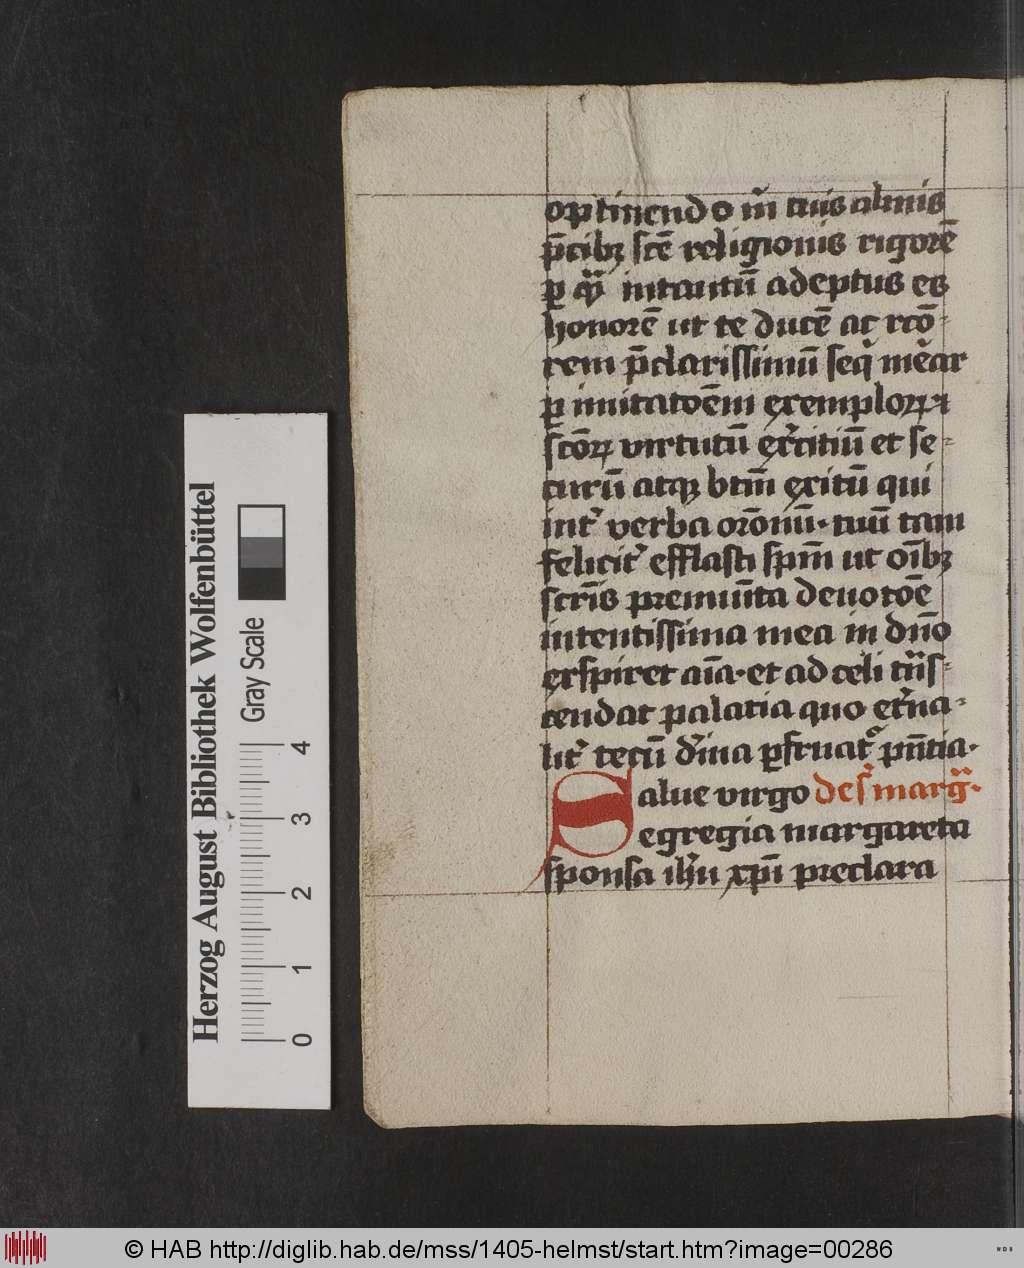 optinendo m̄ tuis almis
p̄cibꝫ sc̄e religionis rigorē
ꝑ intantū adeptus es
honorē ut te ducē ac rcō-
rem p̄clarissimū seq̄
ꝑ imitatoēm exemploꝝ
sc̄oꝝ virtutū ex̓citiū et se-
curū atqꝫ btm̄ exitū qui
int̓ verba orōnū tuū tam
felicit̓ efflasti sp̄m ut oībꝫ
premunīta deuotōe
intentissima mea in dn̄o
exspiret aīa et ad celi
cendat palatia quo et̓na-
lit̓ tecū d̓ina ꝑfruat̓ pn̄tia.
Salue virgo de s̓ marg̃.
egregia margareta
sponsa ih̓u xp̄i preclara
Herzog August Bibliothek Wolfenbüttel
Gray Scale
0 1 2 3 4
© HAB http://diglib.hab.de/mss/1405-helmst/start.htm?image=00286